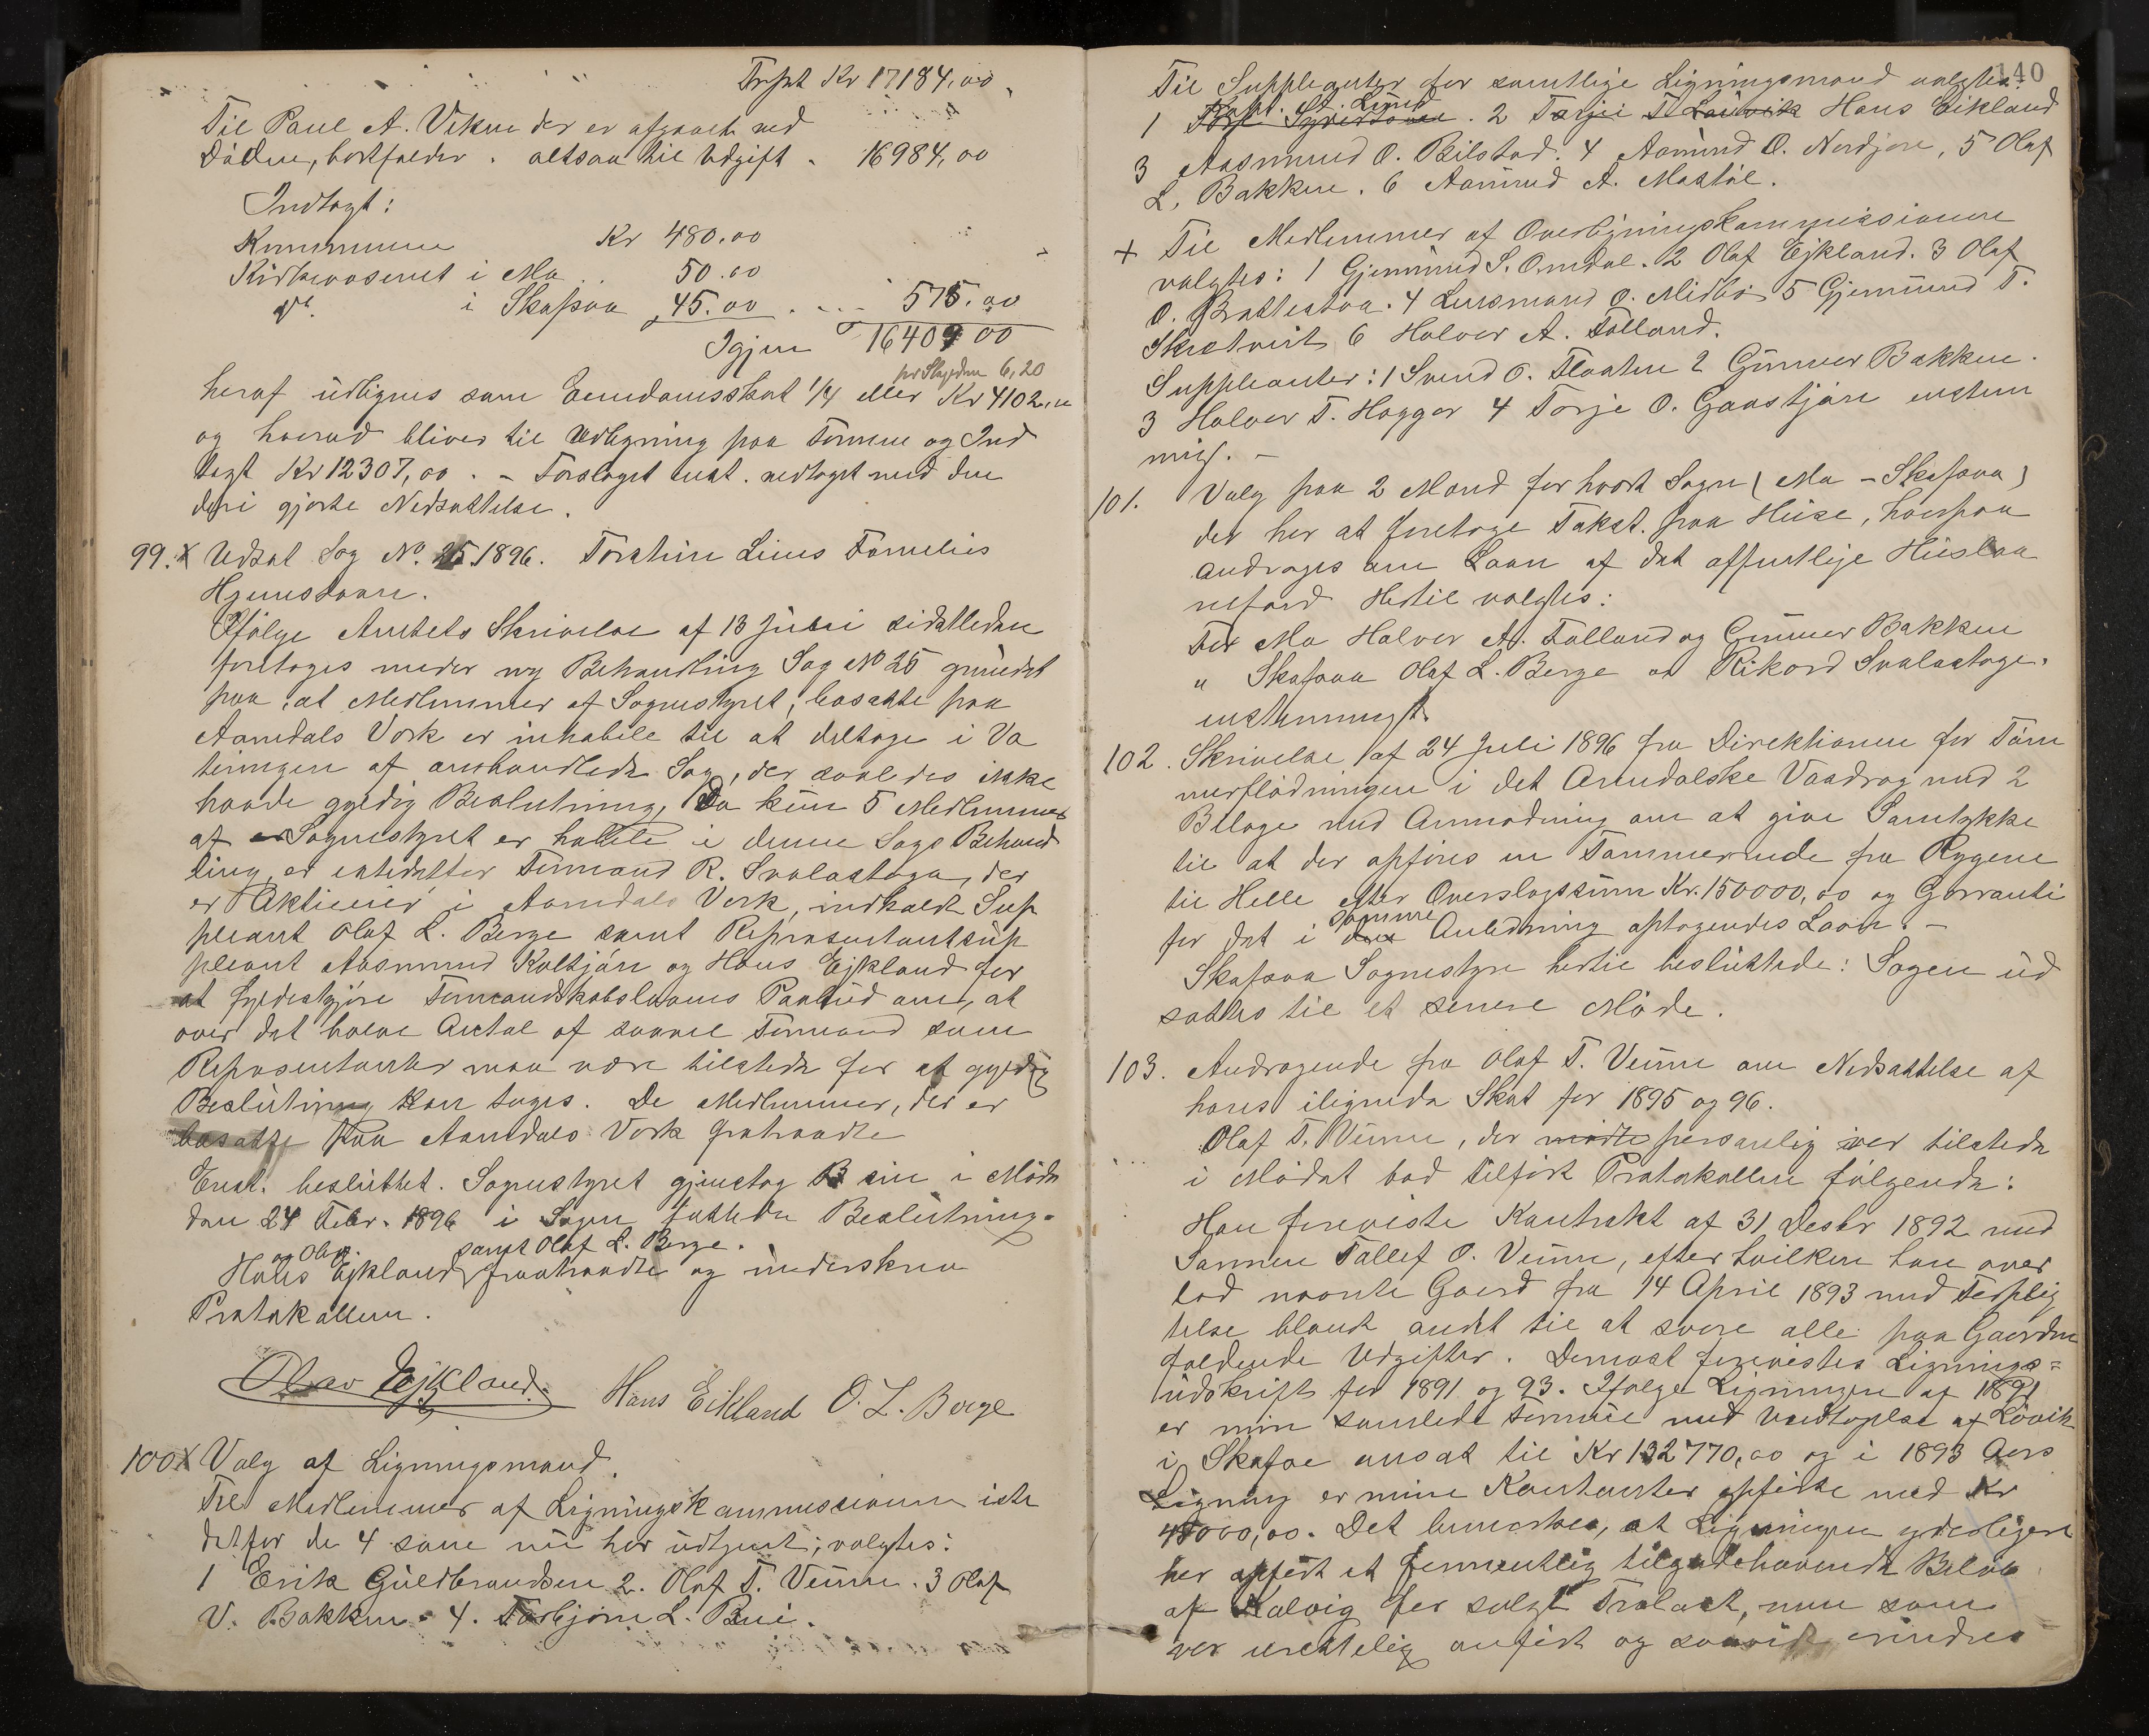 Trpt Kr 17184,00
Til Paul A. Vikne der er afgaaet ved
Döden, bortfalder. altsaa til Udgift. 16984,00
Indtægt:
Kommunen Kr 480.00
Kirkevæsenet i Mo 50.00
do. i Skafsaa 45.00 575.00
Igjen 16409 00
pr Skyldm 6,20
heraf udlignes som Eiendomsskat 1/4 eller Kr 4102,00
og hvorved bliver til Udligning paa Formue og Ind
tægt Kr 12307,00. - Forslaget enst. vedtaget med den
deri gjorte Nedsættelse.
99. X Udsat Sag No. 25 1896. Torstein Lius Families
Hjemstavn.
Ifölge Amtets Skrivelse af 13 Juni sidstleden
foretoges under ny Behandling Sag No 25 grundet
paa, at Medlemmer af Sognestyret, bosatte paa
Aamdals Værk er inhabile til at deltage i Vo
teringen af omhandlede Sag, der saaledes ikke
havde gyldig Beslutning, Da kun 5 Medlemmer
af Sognestyret er habile i denne Sags Behand
ling, er istedetfor Formand R. Svalastoga, der
er Aktionær i Aamdals Værk, indkaldt Sup
pleant Olaf L. Berge samt Repræsentantsup
pleant Aasmund Kultjörn og Hans Ejkland for
at fyldestgjöre Formandskabslovens Paabud om, at
over det halve Antal af saavel Formænd som
Repræsentanter maa være tilstede for at gyldig
Beslutning kan tages. De Medlemmer, der er
bosatte paa Aamdals Værk fratraadte
Enst. besluttet. Sognestyret gjentog sin i Möde
den 24 Febr. 1896 i Sagen fattede Beslutning.
og Olav. samt Olaf L. Berge.
Hans Ejkland fratraadte og underskrev
Protokollen.
Olav Ejkland. Hans Eikland O. L. Berge
100 X Valg af Ligningsmænd.
Til Medlemmer af Ligningskommissionen iste
detfor de 4 som nu har udtjent, valgtes:
1 Erik Guldbrandsen 2. Olaf T. Veum. 3 Olaf
V. Bakken. 4. Torbjörn L. Bui.
140
Til Suppleanter for samtlige Ligningsmænd valgtes:
St. Lund
1 Syvertsen. 2 Tarjei T. Hans Eikland
3 Aasmund O. Bilstad. 4 Aamund O. Nordjore, 5 Olaf
L. Bakken. 6 Aamund A. Mostöl.
+ Til Medlemmer af Overligningskommissionen
valgtes: 1 Gjermund S. Omdal. 2 Olaf Ejkland. 3 Olaf
O. Brattestaa. 4 Lensmand O. Midbö 5 Gjermund T.
Skretveit 6 Halvor A. Tolland.
Suppleanter: 1 Svend O. Flaaten 2 Gunner Bakken.
3 Halvor T. Hogger 4 Torje O. Gaastjörn enstem
mig. -
101. Valg paa 2 Mænd for hvert Sogn (Mo - Skafsaa)
der har at foretage Takst. paa Huse, hvorpaa
andrages om Laan af det offentlige Huslaa
nefond Hertil valgtes:
For Mo Halvor A. Tolland og Gunner Bakken
" Skafsaa Olaf L. Berge og Rikard Svalastoge.
enstemmigt
102. Skrivelse af 24 Juli 1896 fra Direktionen for Töm
merflödningen i det Arendalske Vasdrag med 2
Bilage med Anmodning om at give Samtykke
til at der opföres en Tömmerrende fra Rygene
til Helle efter Overslagssum Kr. 150000,00 og Garranti
samme
for det i den Anledning optagendes Laan. -
Skafsaa Sognestyre hertil besluttede: Sagen ud
sættes til et senere Möde.
103. Andragende fra Olaf T. Veum om Nedsættelse af
hans ilignede Skat for 1895 og 96.
Olaf T. Veum, der mödte personlig var tilstede
i Mödet bad tilfört Protokollen fölgende:
Han foreviste Kontrakt af 31 Desbr 1892 med
Sønnen Tallef O. Veum, efter hvilken han over
lod nævnte Gaard fra 14 April 1893 med Forplig
telse blandt andet til at svare alle paa Gaarden
faldende Udgifter. Dernæst forevistes Lignings=
udskrift for 1891 og 93. Ifölge Ligningen af 1891
er min samlede Formue med Undtagelse af Lövik
i Skafsaa ansat til Kr 132770,00 og i 1893 Aars
Ligning er mine Kontanter opförte med Kr
45000,00. Det bemærkes, at Ligningen yderligere
har opfört et formentlig tilgodehavende Belöb
af Kalvig for solgt Trælast, men som
var urettelig anfört og saavidt erindres